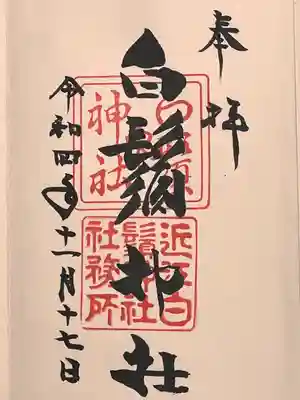 奉拝
白鬚神社
令和四年十一月十七日
白鬚神社
近江白鬚神社社務所